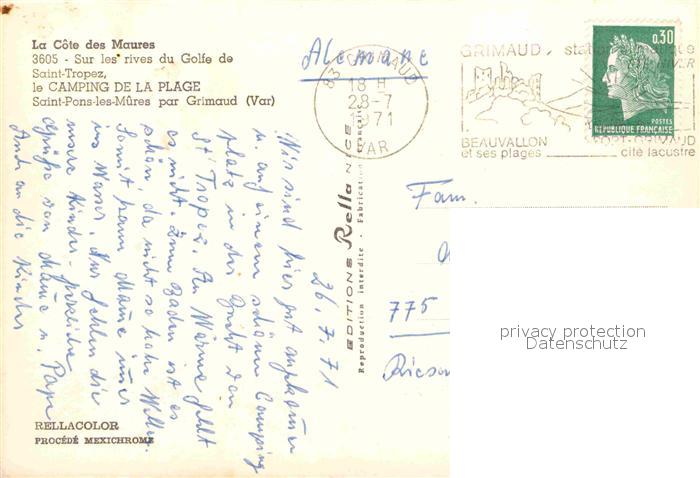 La Côte des Maures
3605 - Sur les rives du Golfe de
Saint-Tropez,
le CAMPING DE LA PLAGE
Saint-Pons-les-Mûres par Grimaud (Var)
Alemane
83 GRIMAUD
18 H
28-7
1971
VAR
GRIMAUD, station
BEAUVALLON
et ses plages
PORT-GRIMAUD
cité lacustre
0,30
POSTES
REPUBLIQUE FRANÇAISE
26.7.71
Wir sind hier gut angekommen
u. auf einem schönen Camping
platz in der Bucht von
St Tropez. An Wärme fehlt
es nicht. Zum Baden ist es
schön, da nicht so hohe Wellen.
Somit kann Mama immer
ins Wasser. Nur fehlen die
Kinder
Grüße von Mama u. Papa
Auch an die Kinder
EDITIONS Rella NICE
Reproduction interdite Fabrication Française
Fam.
775
Riesa
privacy protection
Datenschutz
RELLACOLOR
PROCÉDÉ MEXICHROME